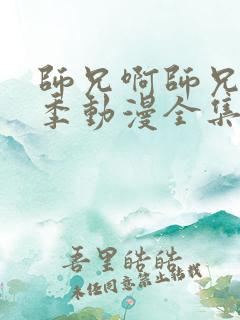 師兄啊師兄
季動漫全集
吾里皓皓
未経同意禁止轉載